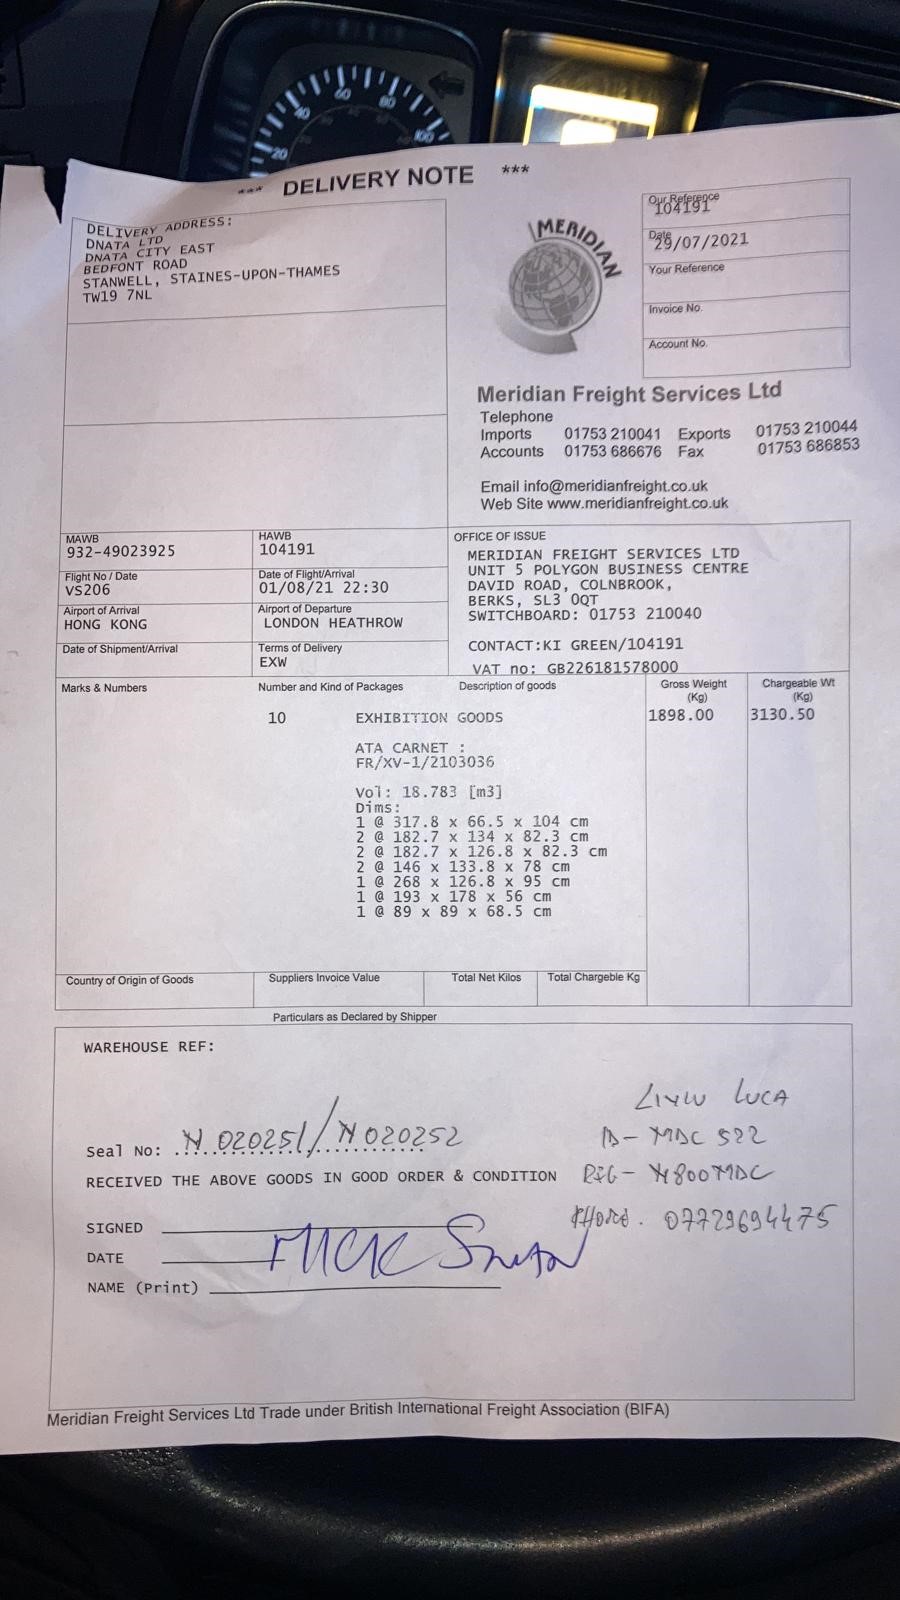 20 40 60 80 100
*** DELIVERY NOTE ***
DELIVERY ADDRESS:
DNATA LTD
DNATA CITY EAST
BEDFONT ROAD
STANWELL, STAINES-UPON-THAMES
TW19 7NL
MERIDIAN
Our Reference
104191
Date
29/07/2021
Your Reference
Invoice No.
Account No.
Meridian Freight Services Ltd
Telephone
Imports 01753 210041 Exports 01753 210044
Accounts 01753 686676 Fax 01753 686853
Email info@meridianfreight.co.uk
Web Site www.meridianfreight.co.uk
MAWB
932-49023925
HAWB
104191
Flight No / Date
VS206
Date of Flight/Arrival
01/08/21 22:30
Airport of Arrival
HONG KONG
Airport of Departure
LONDON HEATHROW
Date of Shipment/Arrival
Terms of Delivery
EXW
OFFICE OF ISSUE
MERIDIAN FREIGHT SERVICES LTD
UNIT 5 POLYGON BUSINESS CENTRE
DAVID ROAD, COLNBROOK,
BERKS, SL3 0QT
SWITCHBOARD: 01753 210040
CONTACT:KI GREEN/104191
VAT no: GB226181578000
Marks & Numbers
Number and Kind of Packages
Description of goods
Gross Weight
(Kg)
Chargeable Wt
(Kg)
10 EXHIBITION GOODS 1898.00 3130.50
ATA CARNET :
FR/XV-1/2103036
Vol: 18.783 [m3]
Dims:
1 @ 317.8 x 66.5 x 104 cm
2 @ 182.7 x 134 x 82.3 cm
2 @ 182.7 x 126.8 x 82.3 cm
2 @ 146 x 133.8 x 78 cm
1 @ 268 x 126.8 x 95 cm
1 @ 193 x 178 x 56 cm
1 @ 89 x 89 x 68.5 cm
Country of Origin of Goods
Suppliers Invoice Value
Total Net Kilos
Total Chargeble Kg
Particulars as Declared by Shipper
WAREHOUSE REF:
LIVIU LUCA
Seal No: N 020251/N020252
ID- MDC 522
RECEIVED THE ABOVE GOODS IN GOOD ORDER & CONDITION
REG- N800MDC
PHONE. 07729694475
SIGNED
DATE
NAME (Print)
Meridian Freight Services Ltd Trade under British International Freight Association (BIFA)